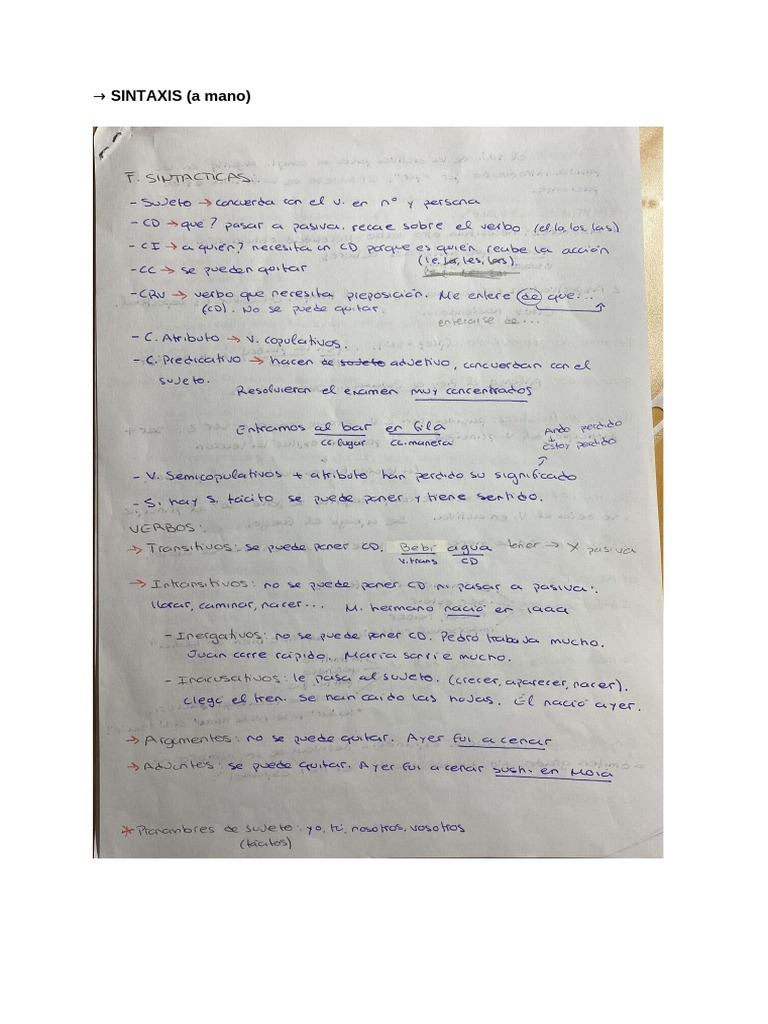 → SINTAXIS (a mano)
F. SINTACTICAS.
- Sujeto → concuerda con el v. en nº y persona
- CD → que? pasar a pasiva. recae sobre el verbo (el, la, los, las)
- CI → a quién? necesita un CD porque es quien recibe la acción
(le, las, les, los)
- CC → se pueden quitar
- CRV → verbo que necesita preposición. Me entere de que...
(CD). No se puede quitar.
enterarse de...
- C. Atributo → v. copulativos.
- C. Predicativo → hacen de sujeto adjetivo, concuerdan con el
sujeto.
Resolvieron el examen muy concentrados
Entramos al bar en fila
cc. lugar cc. manera
Ando perdido
estoy perdido
- V. Semicopulativos + atributo han perdido su significado
- S. hay S. tácito se puede poner y tiene sentido.
VERBOS:
→ Transitivos: se puede poner CD. Bebí agua tener → X pasiva
v. trans CD
→ Intransitivos: no se puede poner CD ni pasar a pasiva:
llorar, caminar, nacer... M. hermano nació en 1999
- Inergativos: no se puede poner CD. Pedro trabaja mucho.
Juan corre rápido. María sonríe mucho.
- Inacusativos: le pasa al sujeto. (crecer, aparecer, nacer).
Llegó el tren. Se han caido las hojas. Él nació ayer.
→ Argumentos: no se puede quitar. Ayer fui a cenar
→ Adjuntos: se puede quitar. Ayer fui a cenar sushi en
* Pronombres de sujeto: yo, tú, nosotros, vosotros
(tácitos)